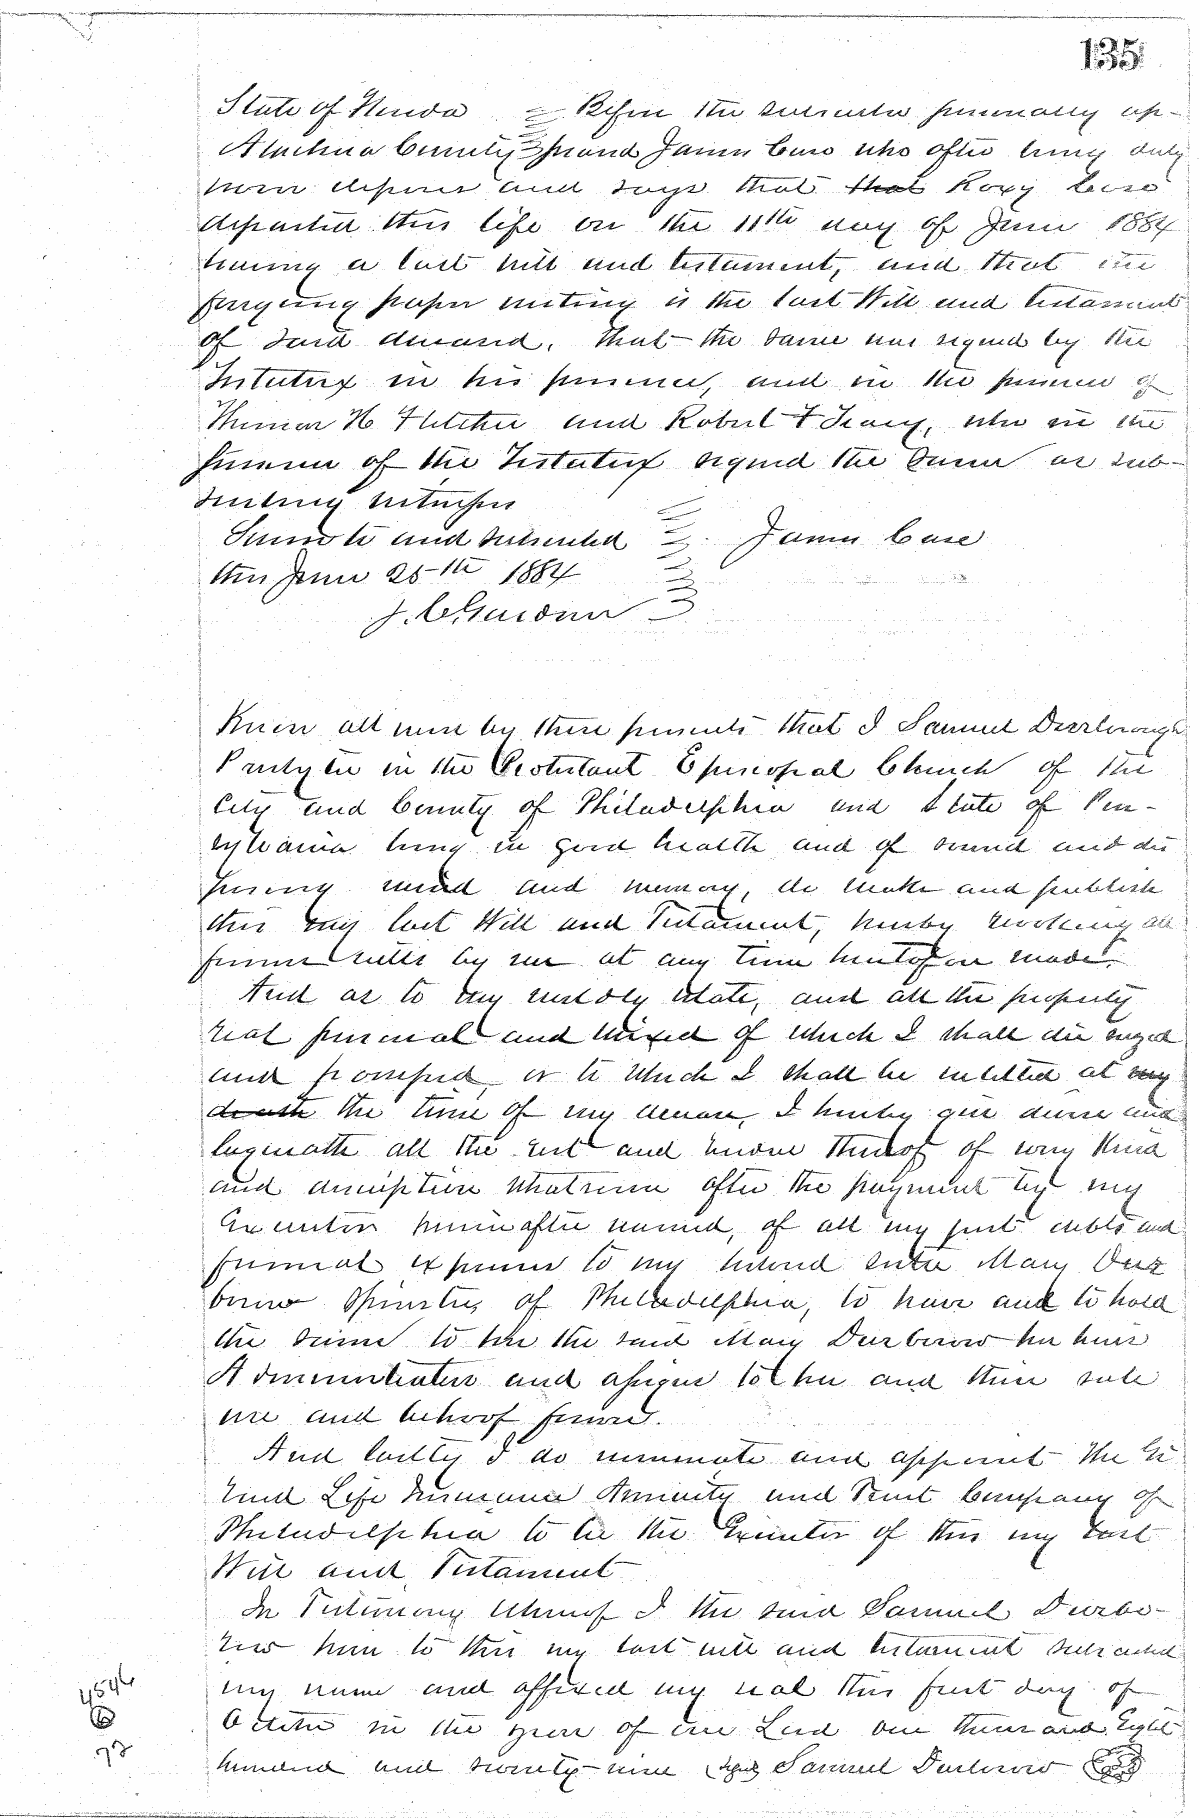 135
State of Florida Before the subscriber personally ap-
Alachua County peared James Case who after being duly
sworn deposes and says that that Roxy Case
departed this life on the 11th day of June 1884
having a last will and testament, and that the
foregoing paper writing is the last Will and testament
of said deceased. That the same was signed by the
Testatrix in his presence, and in the presence of
Thomas H Fletcher and Robert F, who in the
presence of the Testatrix signed the same as sub-
scribing witnesses
Sworn to and subscribed James Case
this June 25th 1884
J. C. Gardner
Know all men by these presents that I Samuel Durborough
Presbyter in the Protestant Episcopal Church of the
City and County of Philadelphia and State of Pen-
sylvania being in good health and of sound and dis
posing mind and memory, do make and publish
this my last Will and Testament, hereby revoking all
former wills by me at any time heretofore made.
And as to my worldly estate, and all the property
real personal and mixed of which I shall die seized
and possessed, or to which I shall be entitled at my
death the time of my decease, I hereby give devise and
bequeath all the rest and residue thereof of every kind
and description whatsoever after the payment by my
Executor hereinafter named, of all my just debts and
funeral expenses to my beloved sister Mary Dur
borow Spinster, of Philadelphia, to have and to hold
the same to her the said Mary Durborow her heirs
Administrators and assigns to her and their sole
use and behoof forever.
And lastly I do nominate and appoint the Gi
rard Life Insurance Annuity and Trust Company of
Philadelphia to be the Executor of this my last
Will and Testament
In Testimony Whereof I the said Samuel Durbo-
row have to this my last will and testament subscribed
my name and affixed my seal this first day of
October in the year of our Lord one thousand Eight
hundred and seventy-nine (Signed) Samuel Durborow